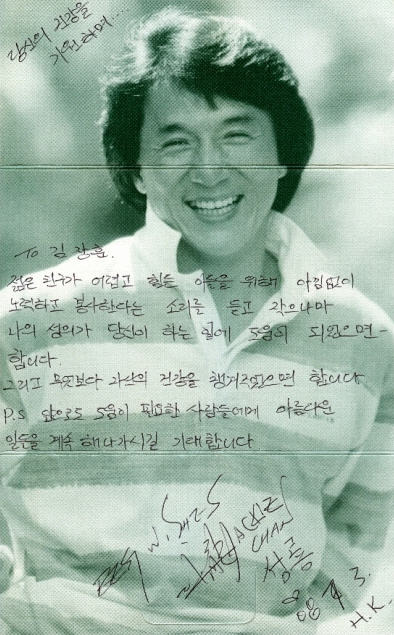 당신의 건강을
기원하며....
To 김 장훈.
젊은 친구가 어렵고 힘든 이들을 위해 아낌없이
노력하고 봉사한다는 소리를 듣고 작으나마
나의 성의가 당신이 하는 일에 도움이 되었으면-
합니다.
그리고 무엇보다 자신의 건강을 챙겨주었으면 합니다
P.S 앞으로도 도움이 필요한 사람들에게 아름다운
일들을 계속 해나가시길 기대합니다
JACKIE
CHAN
성룡
H.K.